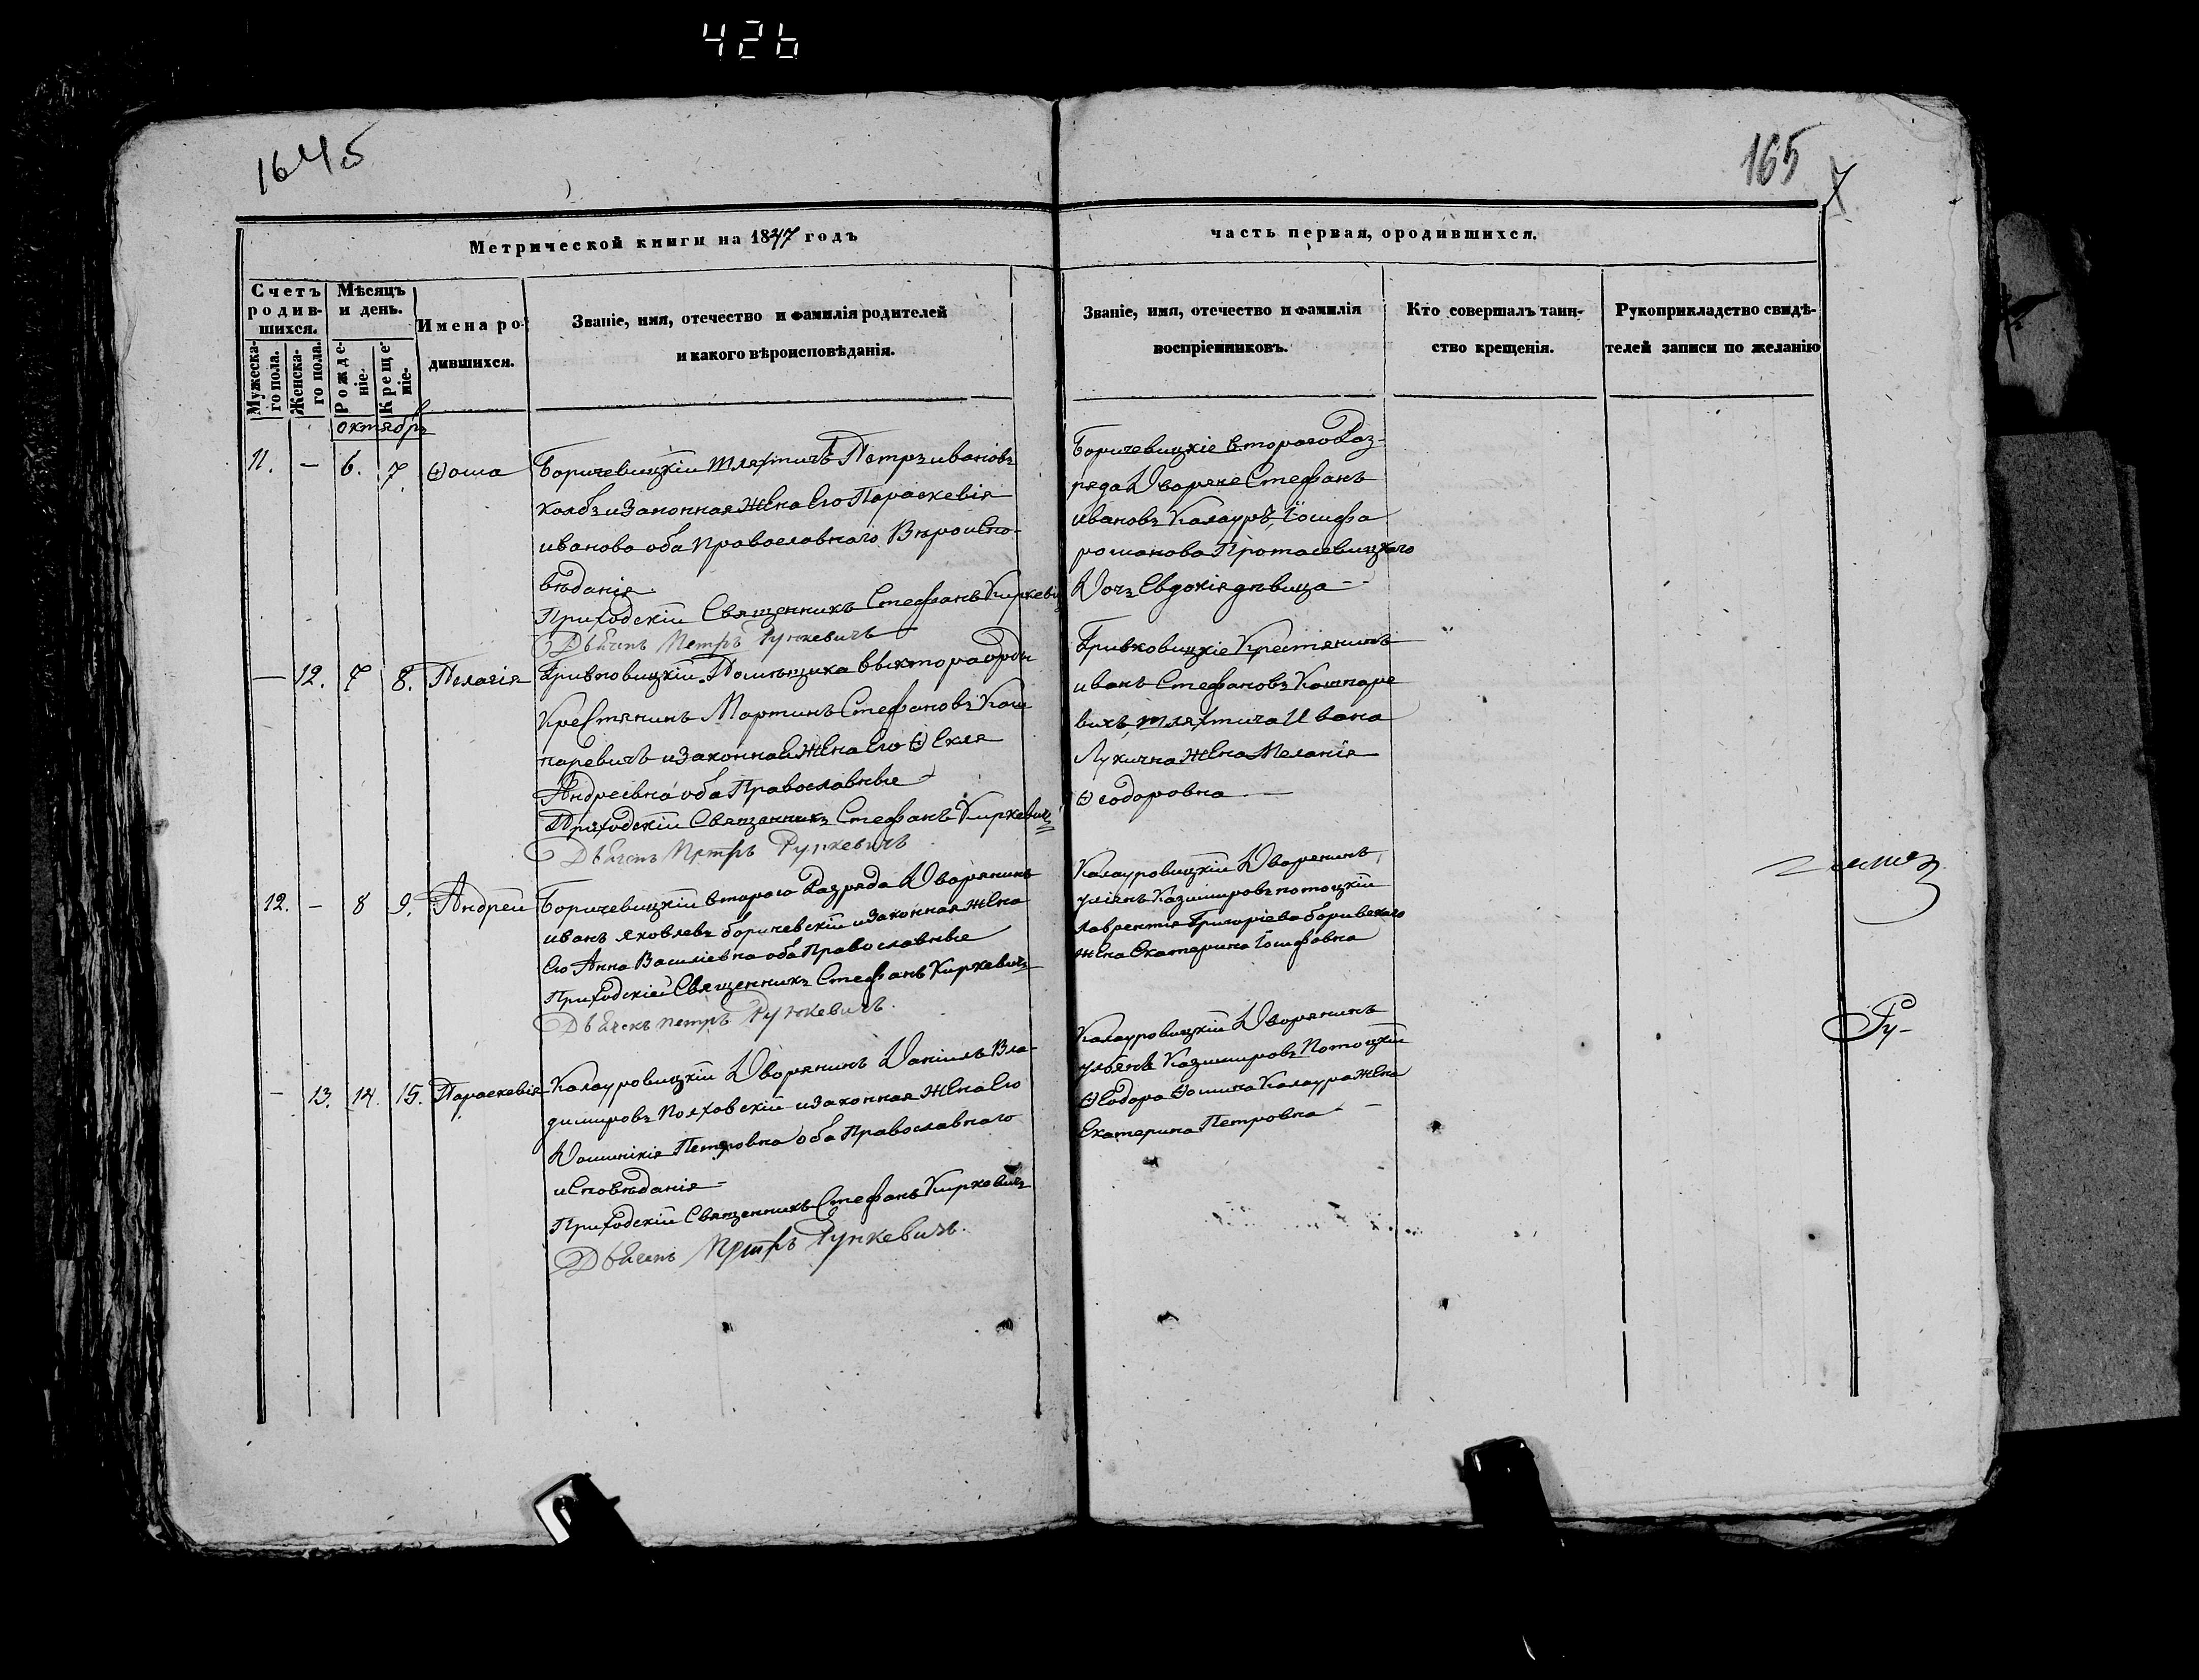 426
1645
165
7
Метрической книги на 1847 годъ
часть первая, ородившихся.
Счетъ родив-шихся.
Мѣсяцъ и день.
Имена ро-дившихся.
Званіе, имя, отечество и фамилія родителей
и какого вѣроисповѣданія.
Званіе, имя, отечество и фамилія
воспріемниковъ.
Кто совершалъ таин-
ство крещенія.
Рукоприкладство свидѣ-
телей записи по желанію
Мужеска-го пола.
Женска-го пола.
Рожде-ніе.
Креще-ніе.
октябрь
11. — 6. 7. Ѳома
Боричевицкій шляхтичъ Петръ ивановъ
Колбъ и Законная Жена Его Параскевія
иванова оба Православнаго Вѣроиспо-
вѣданія
Приходскій Священникъ Стефанъ Киркевич
Дьячекъ Петръ Рункевичъ
Боричевицкіе втораго Раз-
ряда Дворяне Стефанъ
ивановъ Калауръ, Іосифа
романова Протасевицкаго
Дочь Евдокія дѣвица
— 12. 7 8. Пелагія
Кривковицкій Помѣщика Орды
Крестянинъ Мартинъ Стефановъ Каш
паревичъ и Законная Жена Его Ѳекля
Андреевна оба Православные
Приходскій Священникъ Стефанъ Киркевичъ
Дьячекъ Петръ Рункевичъ
Кривковицкіе Крестянинъ
иванъ Стефановъ Кашпаре
вичъ, шляхтича Ивана
Лукича Жена Меланія
Ѳеодоровна
12. — 8 9. Андрей
Боричевицкій втораго Разряда Дворянинъ
иванъ Яковлевъ боричевскій и Законная Жена
Его Анна Василіевна оба Православные
Приходскій Священникъ Стефанъ Киркевичъ
Дьячекъ Петръ Рункевичъ.
Калауровицкій Дворянинъ
уліянъ Казимировъ потоцкій
Лаврентія Григоріева
Жена Екатерина Іосифовна
— 13. 14. 15. Параскевія
Калауровицкій Дворянинъ Даніилъ Вла-
димировъ Поляховскій и Законная Жена Его
Доминікія Петровна оба Православнаго
исповѣданія
Приходскій Священникъ Стефанъ Киркевичъ
Дьячекъ Петръ Рункевичъ.
Калауровицкій Дворянинъ
ульянъ Казимировъ Потоцкій
Ѳеодора Ѳомина Калаура Жена
Екатерина Петровна
Ру-